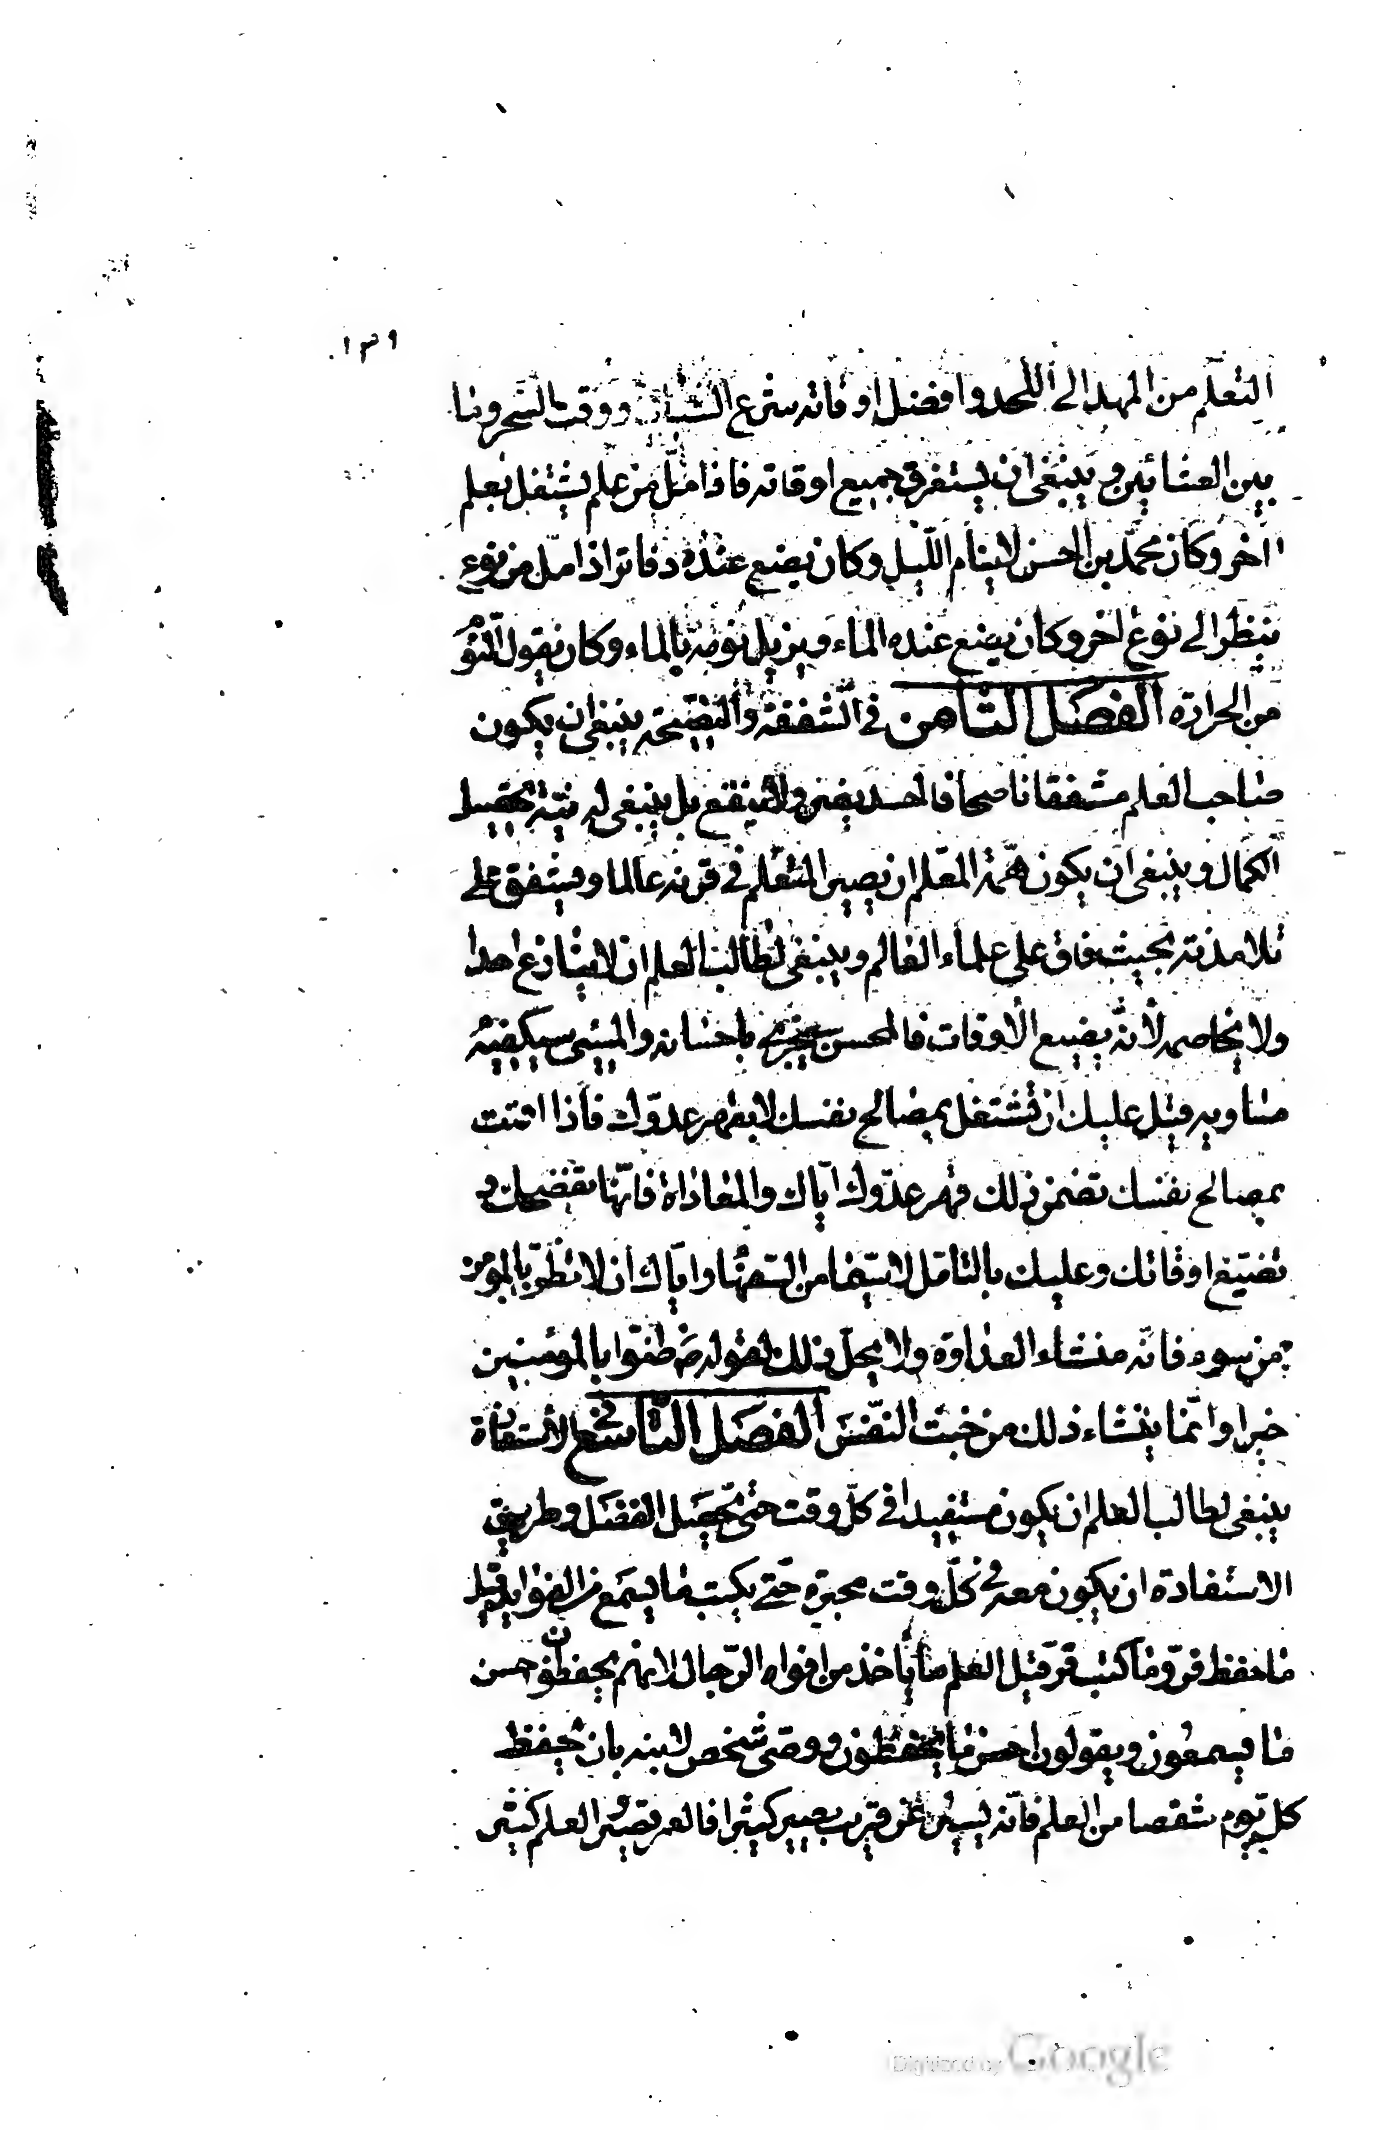 ١٣٩
التعلّم من المهد الى اللحد وافضل اوقاته شرع الشباب ووقت السحر وما
بين العشائين وينبغى ان يستغرق جميع اوقاته فاذا ملّ من علم يشتغل بعلم
آخر وكان محمّد بن الحسن لا ينام اللّيل وكان يضع عنده دفاتر اذا ملّ من نوع
ينظر الى نوع اخر وكان يضع عنده الماء ويزيل نومه بالماء وكان يقول النّوم
من الحرارة الفصل الثامن في الشّفقة والنصيحة ينبغى ان يكون
صاحب العلم مشفقا ناصحا فالحسد يضر ولا ينفع بل ينبغى له نيّة تحصيل
الكمال وينبغى ان يكون همّة المعّلم ان يصير المتعّلم في قرنه عالما ويشفق على
تلامذته بحيث فاق على علماء العالم وينبغى لطالب العلم ان لا ينازع احدا
ولا يخاصمه لأنّه يضيع الاوقات فالمحسن سيجزى باحسانه والمسئى سيكفيه
مساويه قيل عليك ان تشتغل بمصالح نفسك لا بقهر عدوّك فاذا اقمت
بمصالح نفسك تضمن ذلك قهر عدوّك ايّاك والمعاداة فانّها تفضحك و
تضيّع اوقاتك وعليك بالتأمّل لا سيّما من السفهاء وايّاك ان لا تظنّ بالمؤمن
من سوء فانّه منشاء العداوة ولا يحلّ ذلك لقوله ص ظنّوا بالمؤمنين
خيرا وانّما ينشاء ذلك من خبث النّفس الفصل التّاسع في الاستفادة
ينبغى لطالب العلم ان يكون مستفيدا في كلّ وقت حتى يحصل الفضل وطريق
الاستفادة ان يكون معه في كلّ وقت محبرة حتّى يكتب ما يسمع من الفوايد قيل
ما حفظ فرّ وما كتب قرّ قيل العلم ما يأخذ من افواه الرّجال لانهم يحفظون احسن
ما يسمعون ويقولون احسن ما يحفظون ووصّى شخص لابنه بان يحفظ
كل يوم شقصا من العلم فانّه يسير عن قريب يصير كثيرا فالعمر قصير والعلم كثير
Digitized by Google